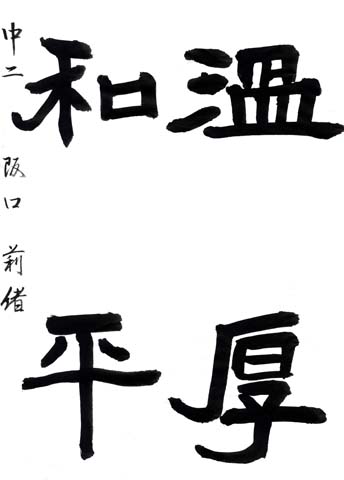 温厚
和平
中二 阪口 莉緒